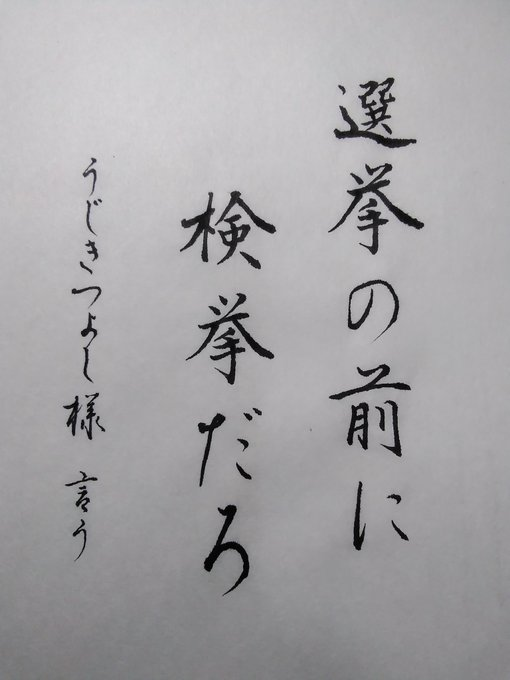 選挙の前に
検挙だろ
うじきつよし様 言う